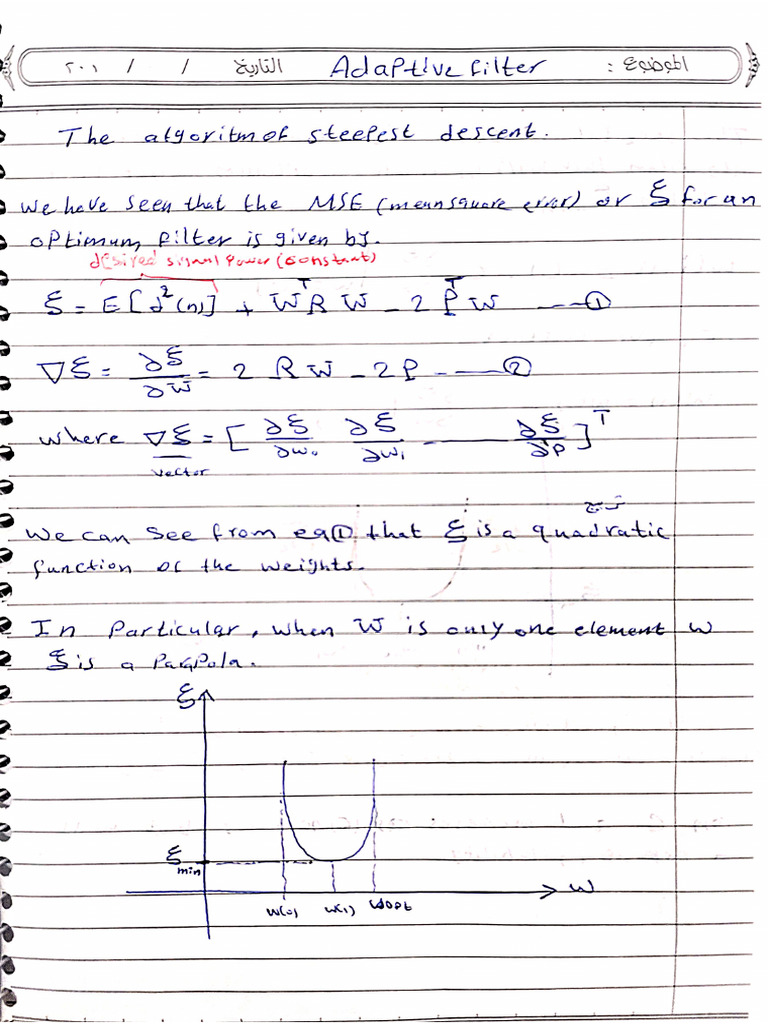 الموضوع : Adaptive filter التاريخ / / ٢٠١
The algoritm of steepest descent.
we have seen that the MSE (mean square error) or ξ for an
optimum filter is given by.
desired signal power (constant)
ξ = E[d²(n)] + W^T R W - 2 P^T W ---- ①
∇ξ = ∂ξ/∂W = 2 R W - 2 P ---- ②
where ∇ξ = [ ∂ξ/∂w₀ ∂ξ/∂w₁ ---- ∂ξ/∂P ]^T
vector
we can see from eq ① that ξ is a quadratic
function of the weights.
In Particular, when W is only one element w
ξ is a Parapola.
ξ
ξ min
w
w(0) w(1) wopt